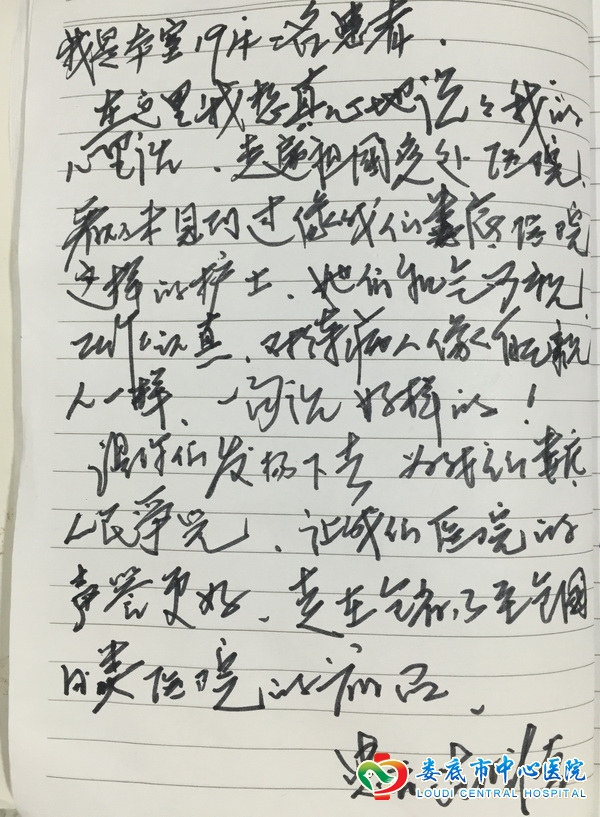 我是本室19床一名患者.
在这里我想真心地说说我的
心里话、走遍祖国各处医院、
从未见到过像我们娄底医院
这样的护士、她们和气可亲
工作认真、对待病人像自己亲
人一样、一句话好样的！
望你们发扬下去 为我们娄底
人民争光、让我们医院的
声誉更好、走在全省乃至全国
同类医院的前面、
患者
娄底市中心医院
LOUDI CENTRAL HOSPITAL